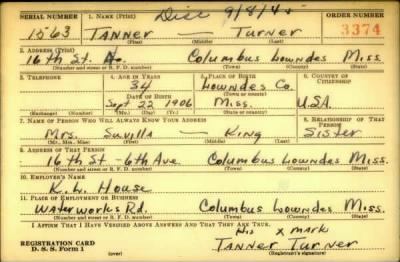 SERIAL NUMBER 1. NAME (Print) Disc 9/8/45 ORDER NUMBER
1563 TANNER — Turner 3374
(First) (Middle) (Last)
2. ADDRESS (Print)
16th St. Av. Columbus Lowndes Miss.
(Number and street or R. F. D. number) (Town) (County) (State)
3. TELEPHONE 4. AGE IN YEARS 5. PLACE OF BIRTH 6. COUNTRY OF CITIZENSHIP
34 Lowndes Co.
DATE OF BIRTH (Town or county)
Sept 22 1906 Miss. U.S.A.
(Exchange) (Number) (Mo.) (Day) (Yr.) (State or country)
7. NAME OF PERSON WHO WILL ALWAYS KNOW YOUR ADDRESS 8. RELATIONSHIP OF THAT PERSON
Mrs. Suvilla — King Sister
(Mr., Mrs., Miss) (First) (Middle) (Last)
9. ADDRESS OF THAT PERSON
16th St - 6th Ave. Columbus Lowndes Miss.
(Number and street or R. F. D. number) (Town) (County) (State)
10. EMPLOYER'S NAME
K. W. House
11. PLACE OF EMPLOYMENT OR BUSINESS
Waterworks Rd. Columbus Lowndes Miss.
(Number and street or R. F. D. number) (Town) (County) (State)
I AFFIRM THAT I HAVE VERIFIED ABOVE ANSWERS AND THAT THEY ARE TRUE.
His X mark
REGISTRATION CARD TANNER Turner
D. S. S. Form 1 (over) (Registrant's signature)